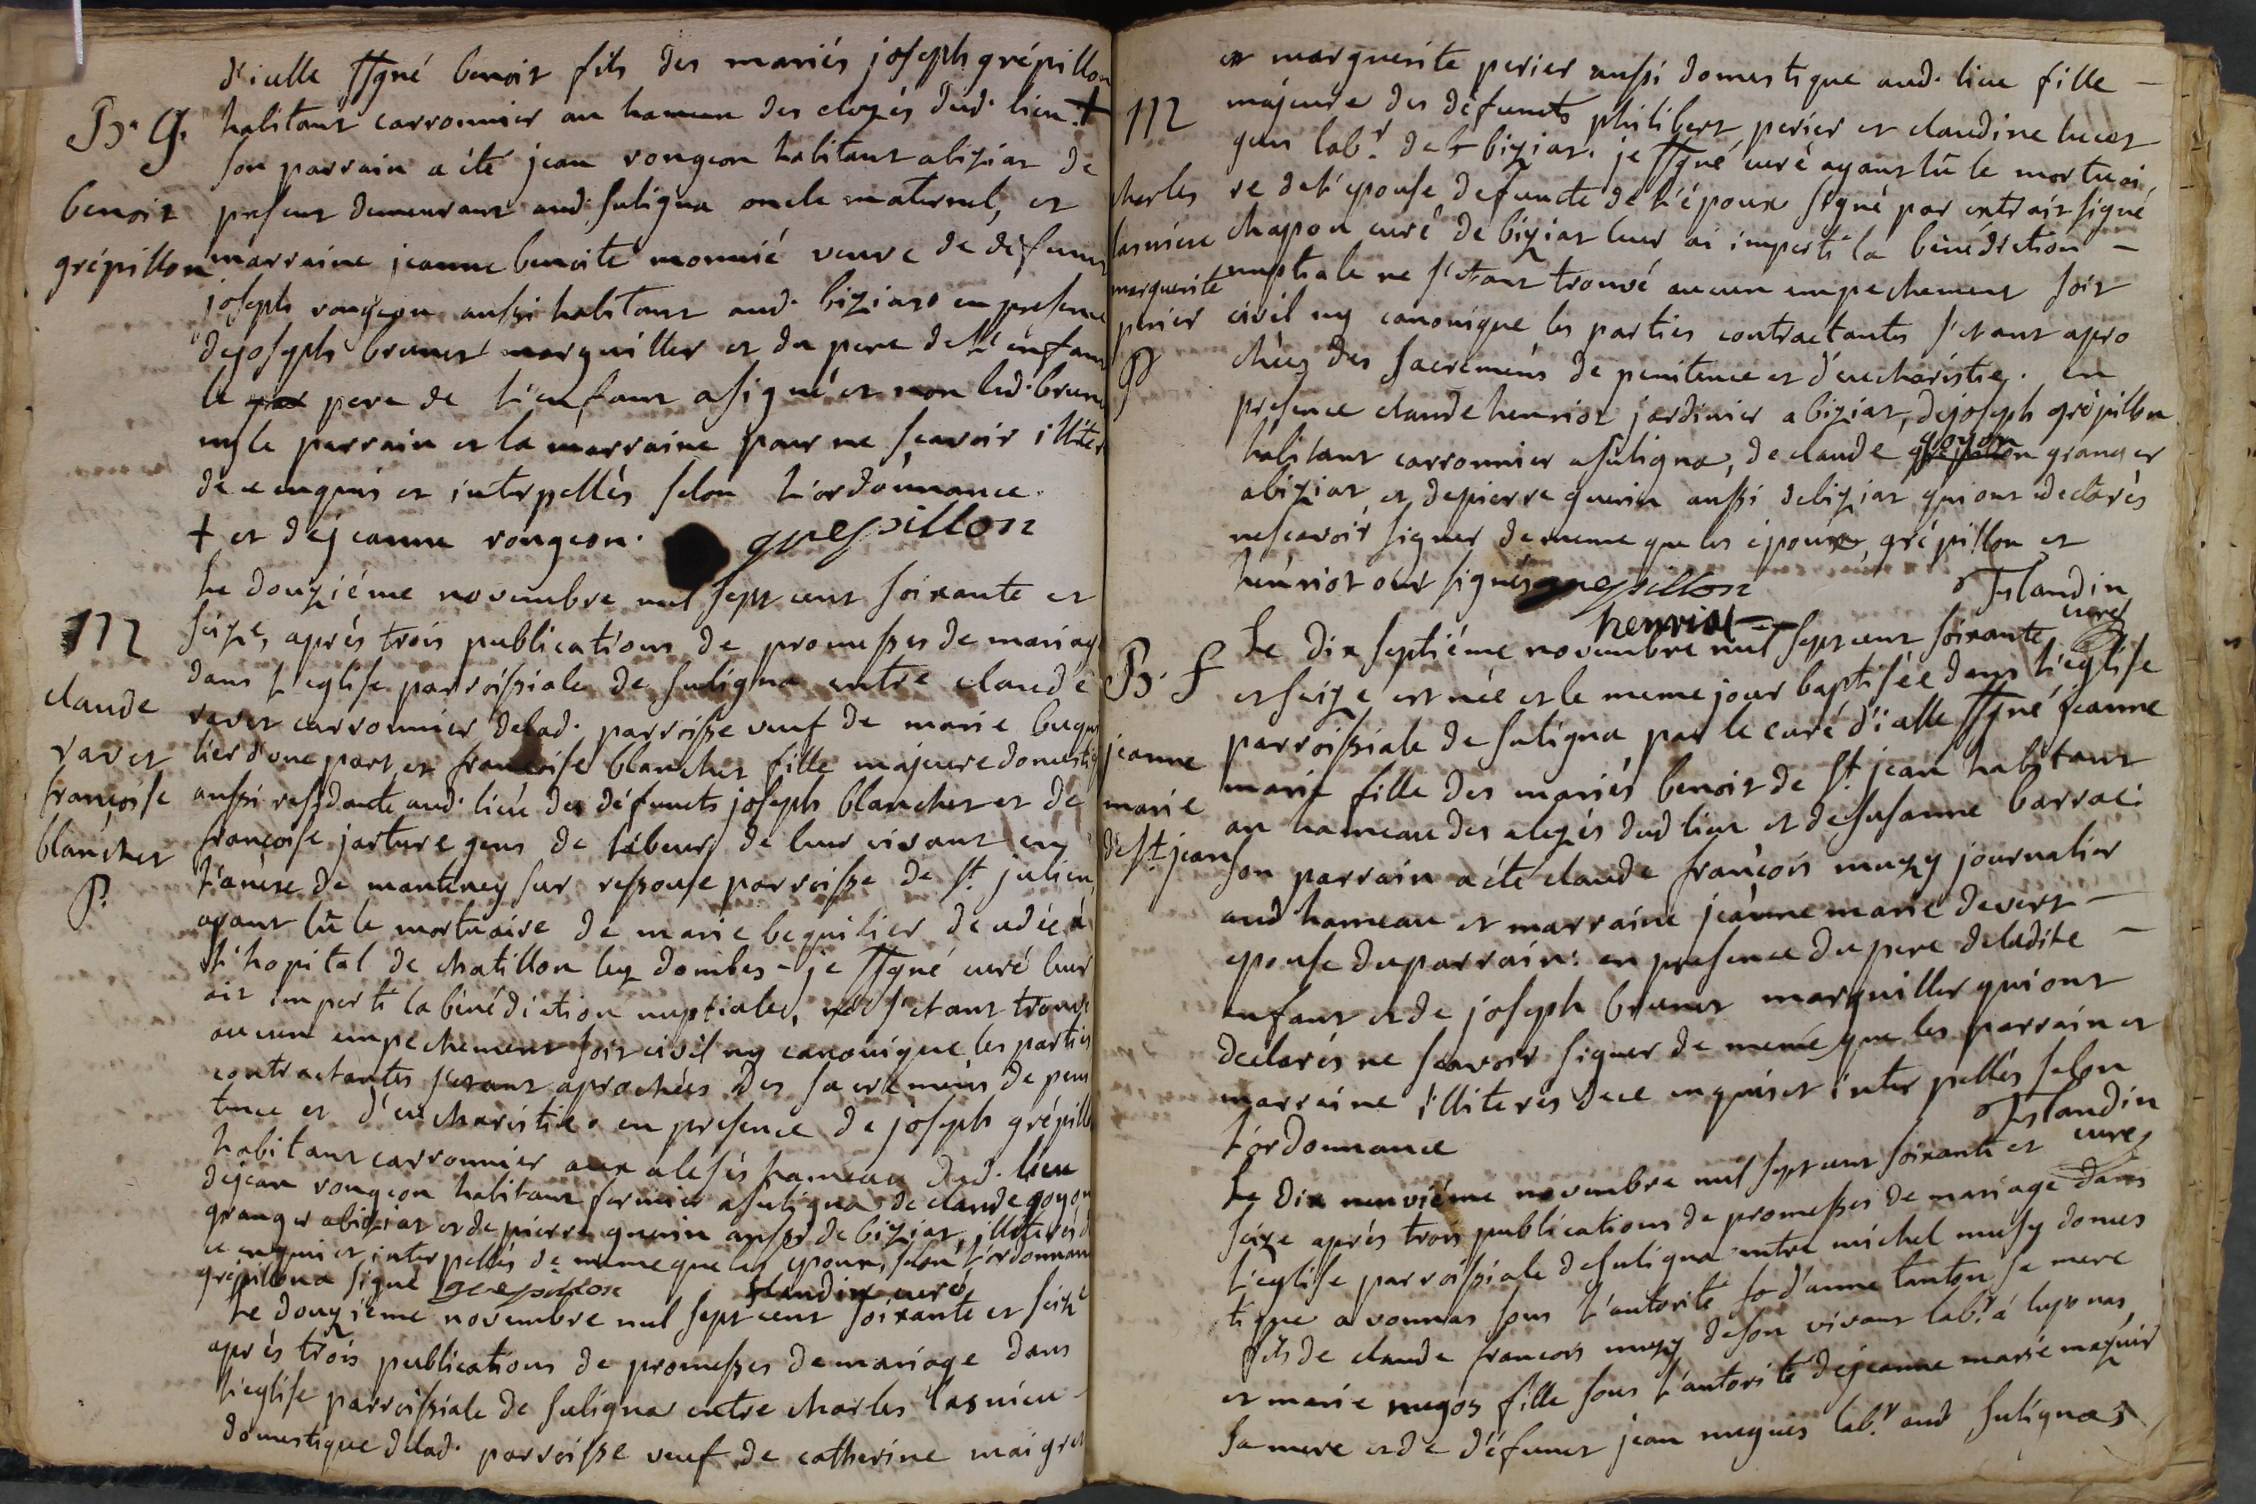 d'icelle ssgné benoit fils des mariés joseph grépillon
B. G. habitant carronnier au hameau des alezés dud. lieu. +
son parrain a été jean rongeon habitant abiziat de
benoit present demeurant aud. suligna oncle maternel, et
grépillon marraine jeanne benoite monnié veuve de defunt
joseph rongeon aussi habitant aud. biziat en presence
de joseph brunet marguiller et du pere de l'enfant
le pere de l'enfant a signé et non led. brunet
ny le parrain et la marraine pour ne scavoir illiter
de ce enquis et interpellés selon l'ordonnance.
+ et de jeanne rongeon. grepillon
Le douziéme novembre mil sept cent soixante et
M seize, aprés trois publications de promesses de mariage
dans l'eglise parroissiale de suligna entre claude
claude ravet carronnier delad. parroisse veuf de marie bequi
ravet lier d'une part et francoise blanchet fille majeure domestiq
françoise aussi residante aud. lieu des défuncts joseph blanchet et de
blanchet françoise jarture gens de labeurs de leur vivant en
P. l'anexe de manteney sur ressouse parroisse de st. julien,
ayant lû le mortuaire de marie bequilier decedée à
l'hopital de chatillon lez dombes - je ssgné curé leur
ait imperti la bénédiction nuptiale, ne s'etant trouvé
aucun empechement soit civil ny canonique les parties
contractantes s'etant aprochées des sacremens de peni
tence et d'eucharistie. en presence de joseph grépillon
habitant carronnier aux alesés hameau dud. lieu
de jean rongeon habitant fermier a suligna, de claude goyon
granger abiziat et de pierre guerin aussi de biziat, illiterés d
ce enquis et interpellés de meme que les epoux, selon l'ordonnance
grépillon a signé grepillon flandin curé
Le douziéme novembre mil sept cent soixante et seize
aprés trois publications de promesses de mariage dans
l'eglise parroissiale de suligna entre charles lasnieu
domestique delad. parroisse veuf de catherine maigret
et marguerite perier aussi domestique aud. lieu fille -
M majeure des défuncts philibert perier et claudine lucet
gens lab.r de biziat. je ssgné curé ayant lû le mortuai
charles re de l'epouse defuncte de l'époux signé par extrait signé
lasnieu chapon curé de biziat leur ai imperti la bénédiction -
marguerite nuptiale ne s'etant trouvé aucun empechement soit
perier civil ny canonique les parties contractantes s'etant apro
P chées des sacremens de penitence et d'eucharistie. en
presence claude henriot jardinier a biziat, de joseph grépillon
habitant carronnier a suligna, de claude goyon granger
abiziat et de pierre guerin aussi de biziat qui ont declarés
ne scavoir signer de meme que les epoux, grépillon et
henriot ont signés grepillon
henriot flandin curé
Le dix septiéme novembre mil sept cent soixante
B. f et seize est née et le meme jour baptisée dans l'eglise
parroissiale de suligna par le curé d'icelle ssgné jeanne
jeanne marie fille des mariés benoit de st. jean habitant
marie au hameau des alezés dud lieu et de susanne barrac:
de st. jean son parrain a été claude françois muzy journalier
aud hameau et marraine jeanne marie devert -
epouse du parrain: en presence du pere deladite -
enfant et de joseph brunet marguiller qui ont
declarés ne scavoir signer de memé que les parrain et
marraine illiterés de ce enquis et interpellés selon
l'ordonnance flandin curé
Le dix neuviéme novembre mil sept cent soixante et
seize aprés trois publications de promesses de mariage dans
l'eglise parroissiale de suligna entre michel musy domes
tique a vonnas sous l'autorité d'anne tanton sa mere
fils de claude francois muzy de son vivant lab.r á luponas,
et marie fille sous l'autorité de jeanne marie
sa mere et de défunct jean lab.r aud suligna